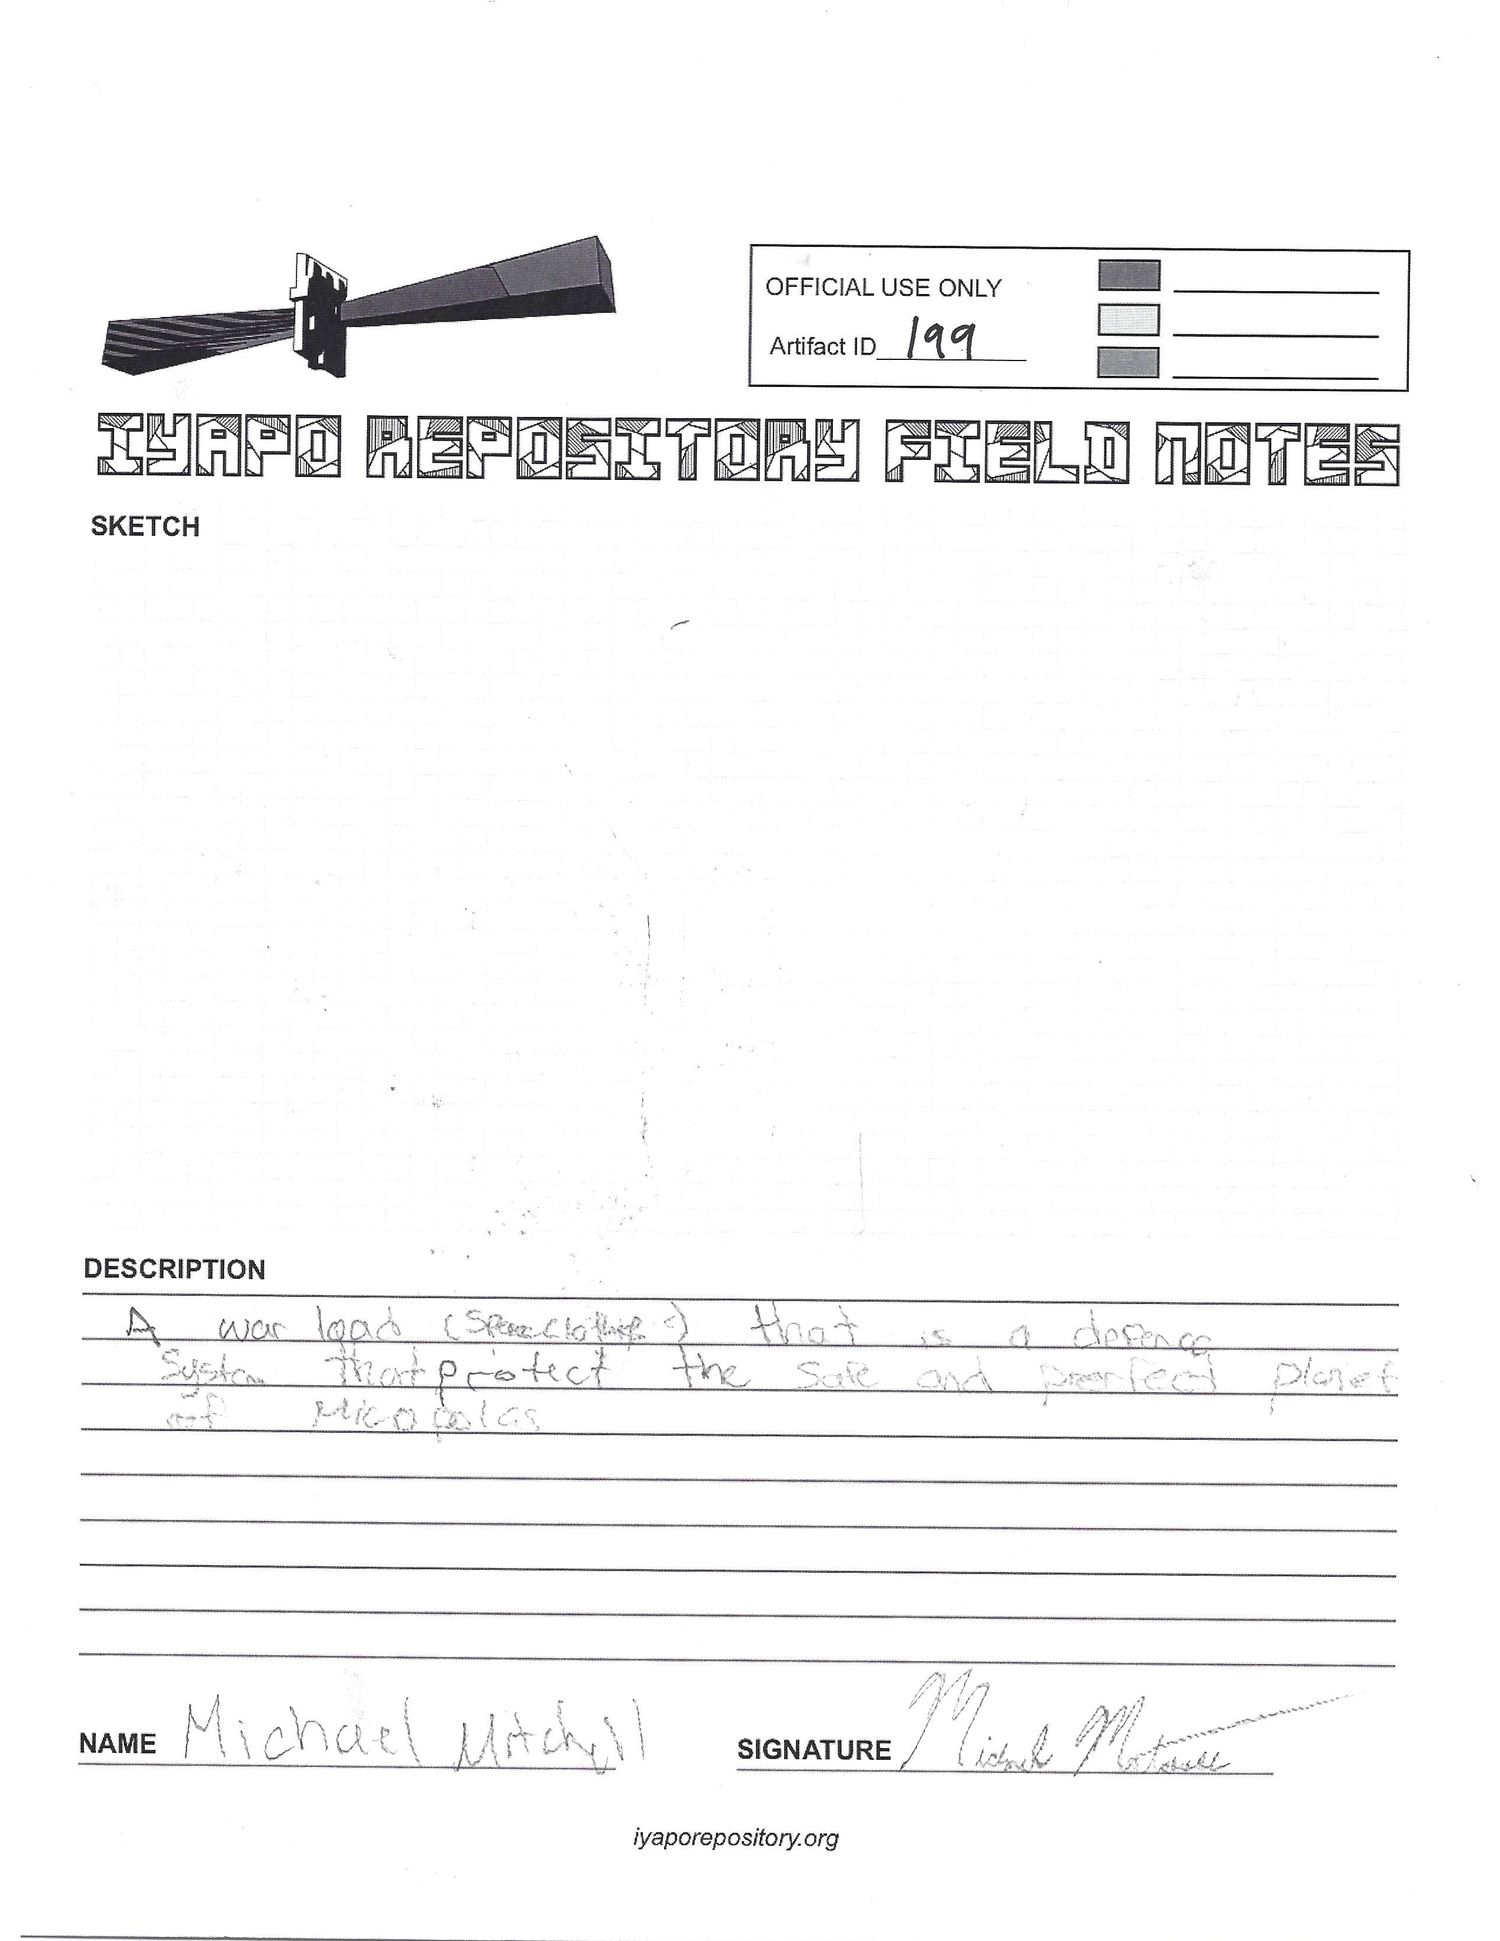 OFFICIAL USE ONLY
Artifact ID 199
IYAPO REPOSITORY FIELD NOTES
SKETCH
DESCRIPTION
A war load (Space clothing) that is a defence
System that protect the safe and perfect planet
of Micopolas
NAME Michael Mitchell
SIGNATURE Michael
iyaporepository.org